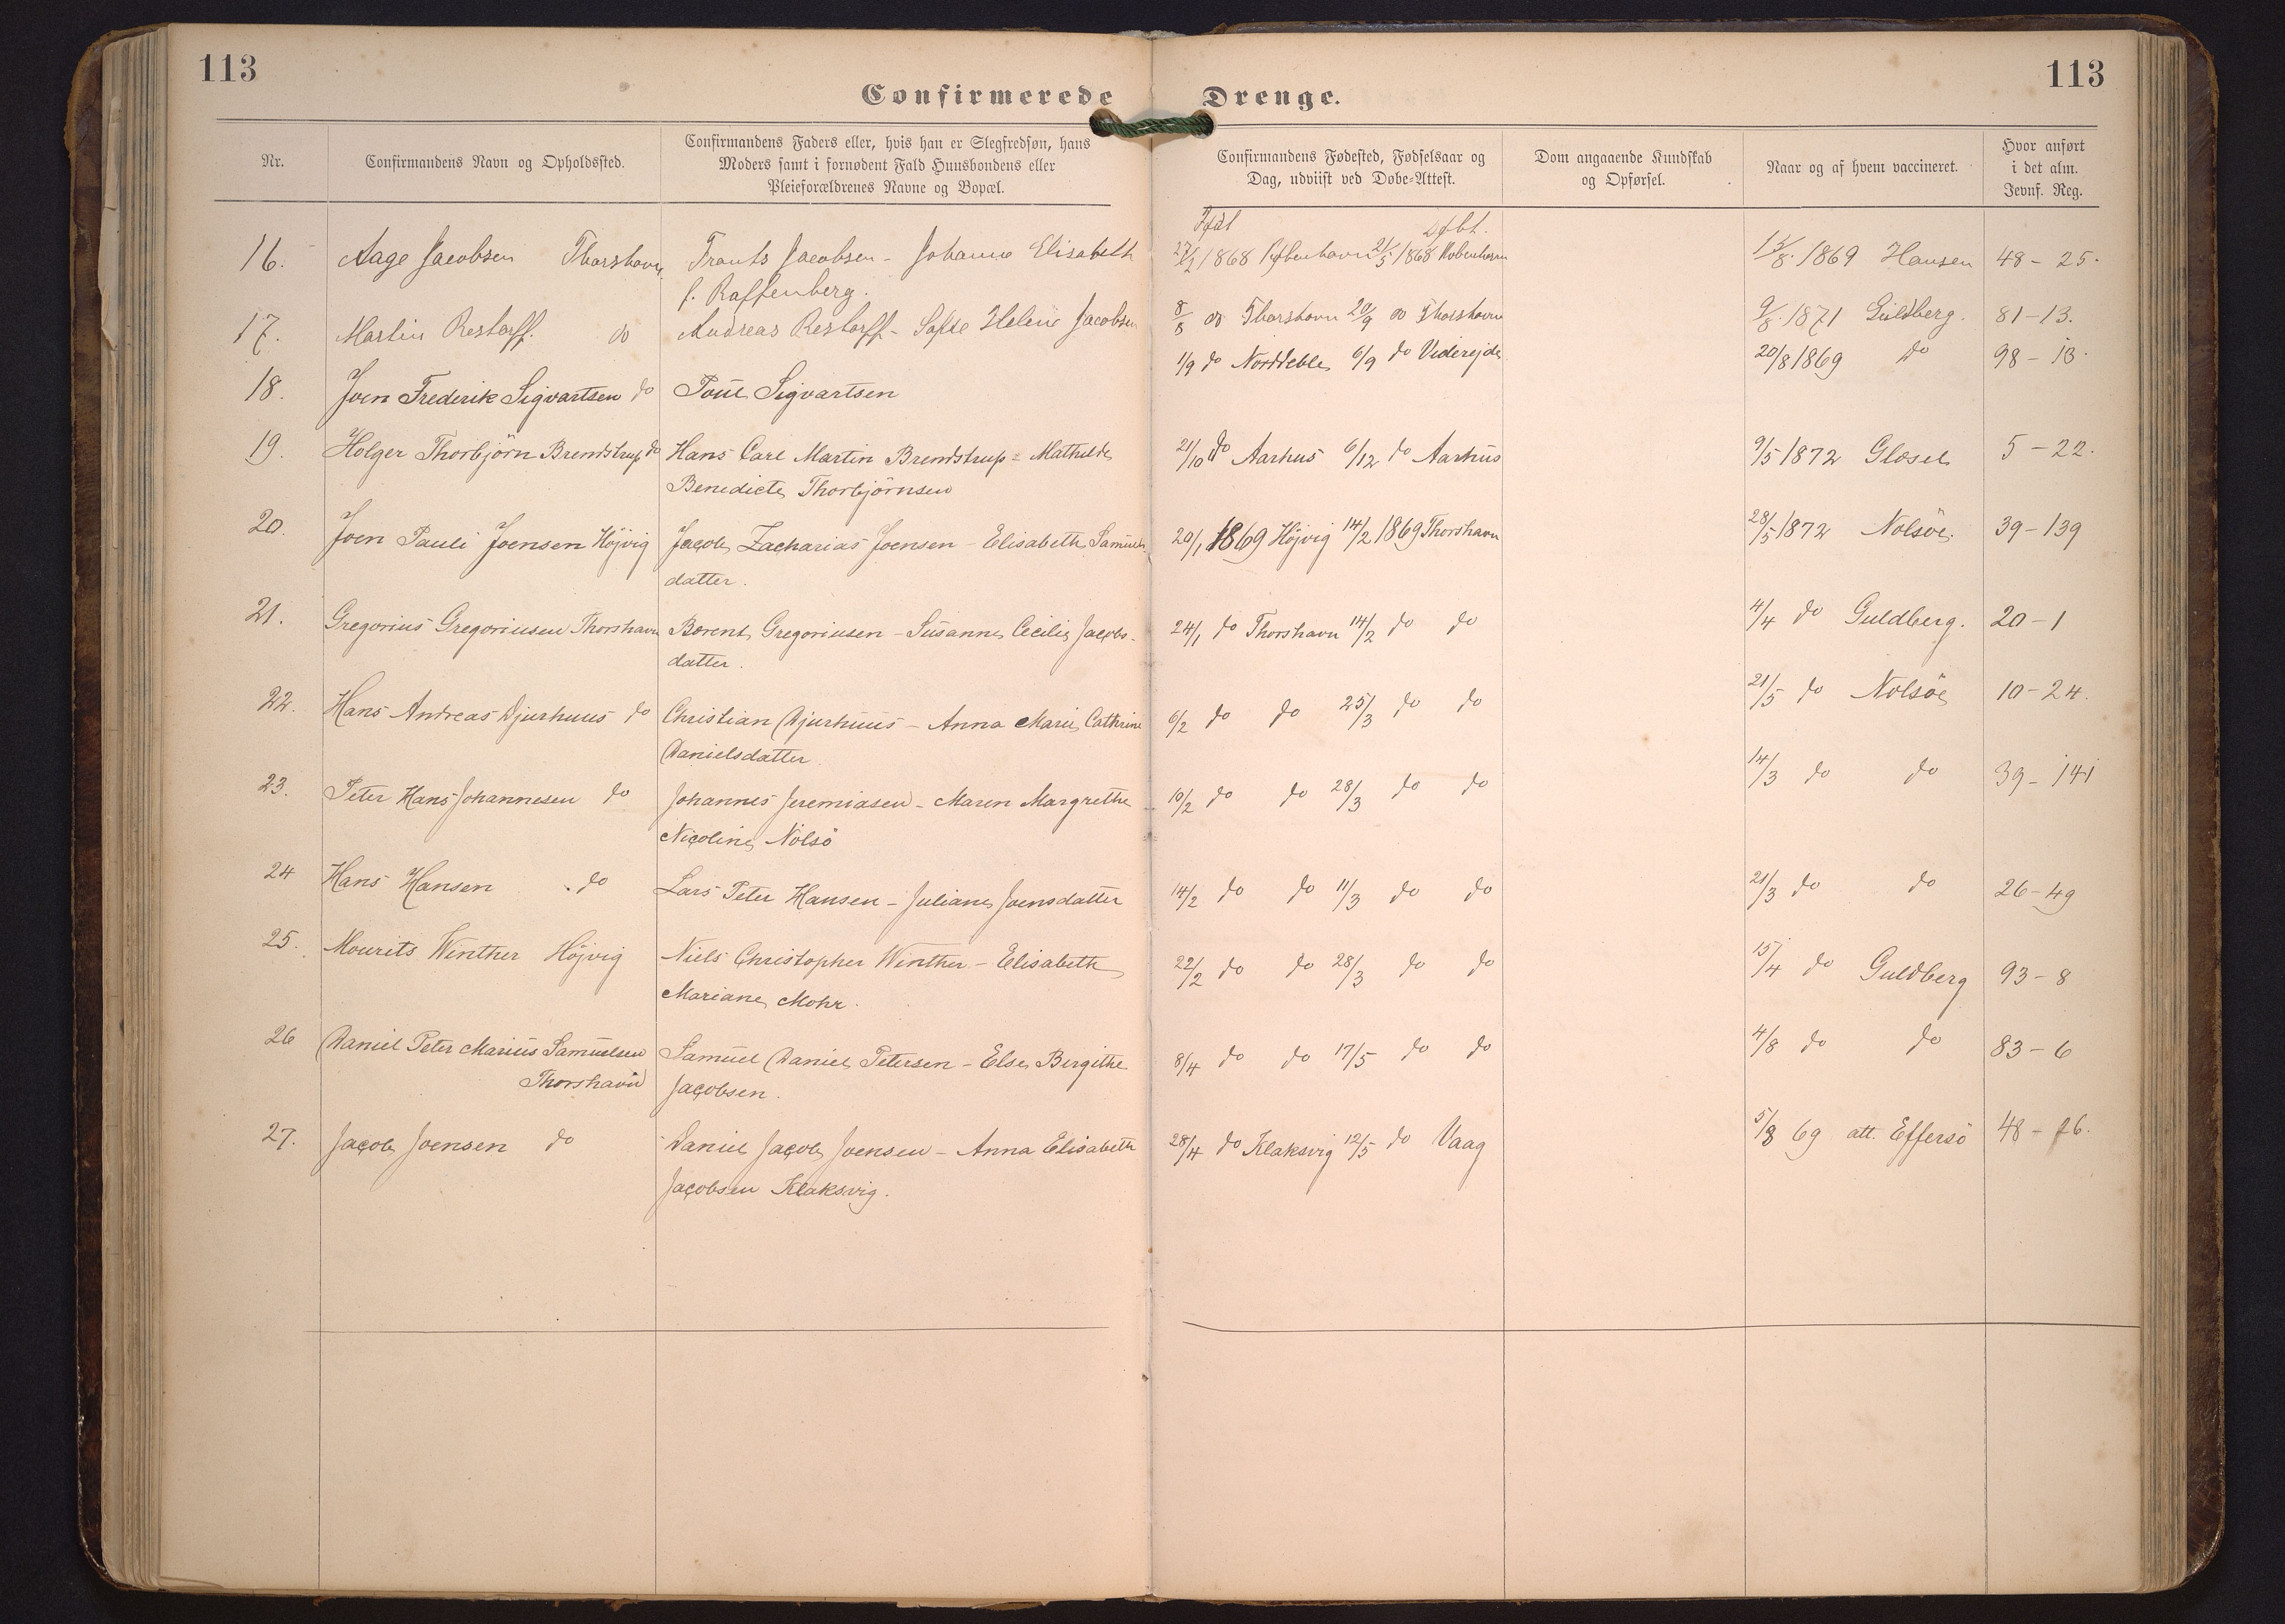 113
113
Confirmerede Drenge.
Nr.
Confirmandens Navn og Opholdssted.
Confirmandens Faders eller, hvis han er Slegfredsøn, hans
Moders samt i fornødent Fald Huusbondens eller
Pleieforældrenes Navne og Bopæl.
Confirmandens Fødested, Fødselsaar og
Dag, udviist ved Døbe-Attest.
Dom angaaende Kundskab
og Opførsel.
Naar og af hvem vaccineret.
Hvor anført
i det alm.
Jevnf. Reg.
døbt.
16. Aage Jacobsen Thorshavn Trants Jacobsen - Johanne Elisabeth 1868 Kjøbenhavn 21/5 1868 Kobenhavn 1869 Hansen 48 - 25.
f. Raffenberg.
17. Martin Restorff. do Andreas Restorff - Sofie Helene Jacobsen 8/8 do Thorshavn 20/9 do Thorshavn 9/8 1871 Guldberg. 81-13.
18. Joen Frederik Sigvartsen do Poul Sigvartsen 1/9 do Norddeble 6/9 do Viderejde 20/8 1869 do 98 - 13.
19. Holger Thorbjörn Brendstrup do Hans Carl Martin Brendstrup - Mathilde 21/10 do Aarhus 6/12 do Aarhus 9/5 1872 Gløsel 5 - 22.
Benedicte Thorbjörnsen
20. Joen Pauli Joensen Höjvig Jacob Zacharias Joensen - Elisabeth Samuels 20/1 1869 Höjvig 14/2 1869 Thorshavn 28/5 1872 Nolsöe. 39-139
datter.
21. Gregorius Gregoriusen Thorshavn Berent Gregoriusen - Susanne Cecilie Jacobs- 24/1 do Thorshavn 14/2 do do 4/4 do Guldberg. 20-1
datter.
22. Hans Andreas Djurhuus do Christian Djurhuus - Anna Marie Cathrine 6/2 do do 25/3 do do 21/5 do Nolsöe 10-24.
Danielsdatter
23. Peter Hans Johannesen do Johannes Jeremiasen - Maren Margrethe 10/2 do do 28/3 do do 14/3 do do 39-141
Nicoline Nölsö
24 Hans Hansen do Lars Peter Hansen - Juliane Joensdatter 14/2 do do 11/3 do do 21/3 do do 26-49
25. Mourits Winther Höjvig Niels Christopher Winther - Elisabeth 22/2 do do 28/3 do do 15/4 do Guldberg 93-8
Mariane Mohr.
26 Daniel Peter Marius Samuelsen Samuel Daniel Petersen - Else Birgithe 8/4 do do 17/5 do do 4/8 do do 83-6
Thorshavn Jacobsen.
27. Jacob Joensen do Daniel Jacob Joensen - Anna Elisabeth 28/4 do Klaksvig 12/5 do Vaag 5/8 69 att. Effersö 48 - 26.
Jacobsen Klaksvig.